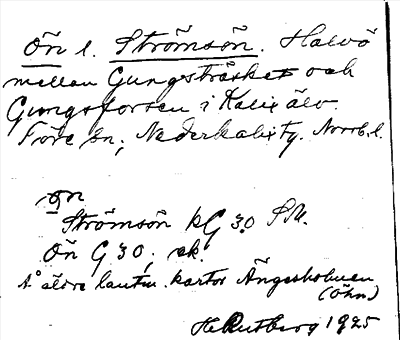 Ön l. Strömsön. Halvö
mellan Gungsträsket och
Gungsforsen i Kalix älv.
Töre sn, Nederkalix tg. Norrb. l.
ön
Strömsön kG 30 SM.
Ön G 30, ek.
Å äldre lantm. kartor Ängesholmen
(Öhn)
H Rutberg 1925